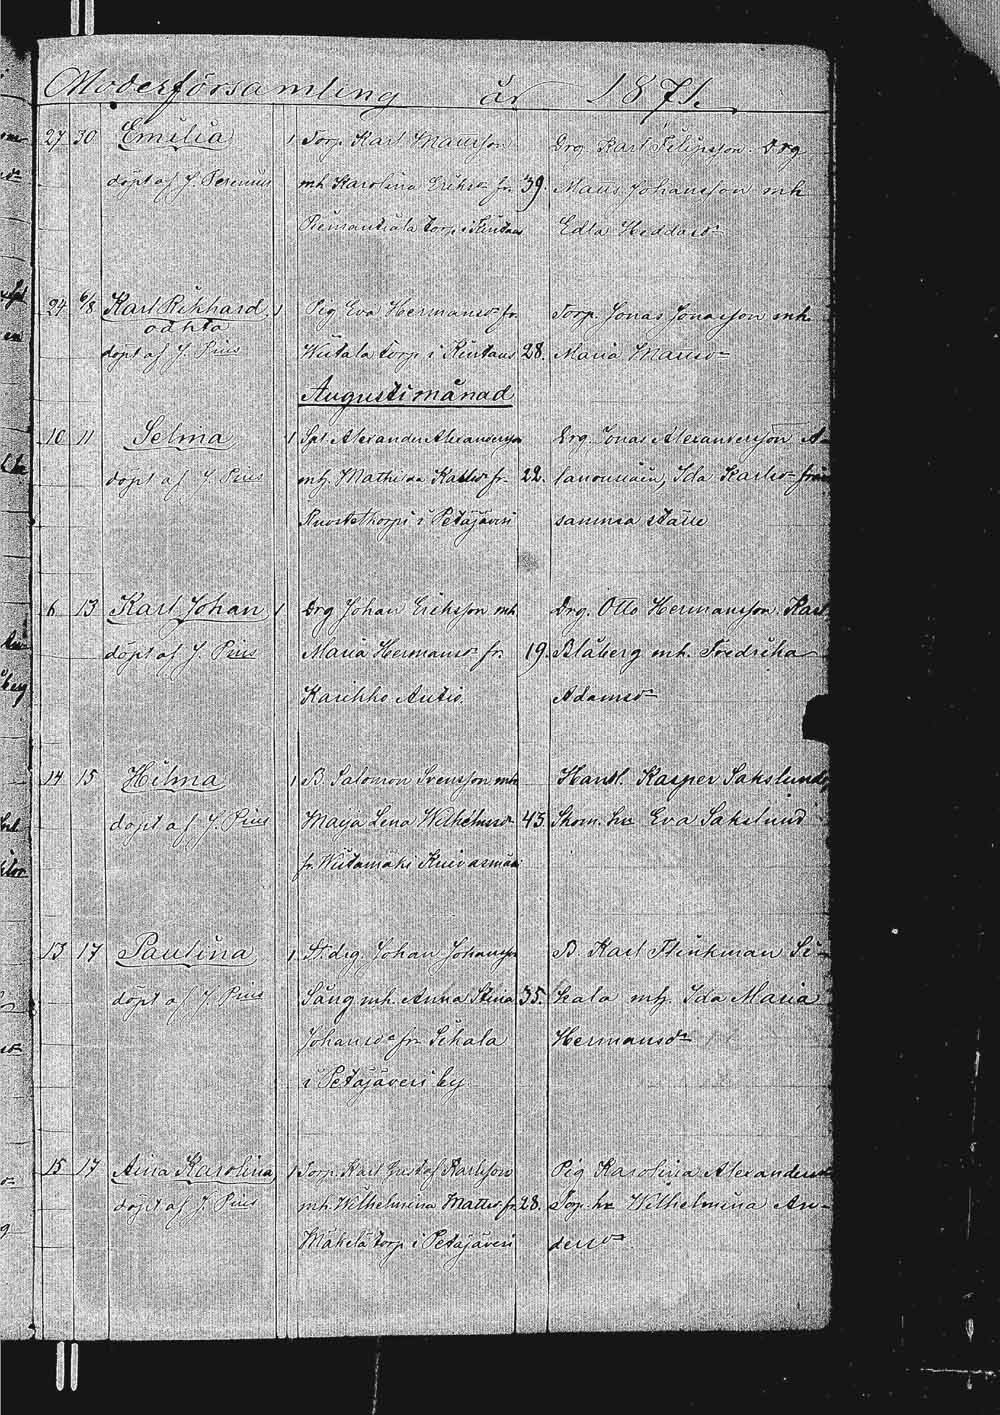 Moderförsamling år 1871.
27 30 Emilia 1 Torp. Karl Mattsson Drg Karl Filipsson. Drg
döpt af J. Perenius mh Karolina Eriksd:r fr. 39. Matts Johansson mh
torp i Kiutais Edla Heddasd:r
24 6/8 Karl Rikhard 1 Pig Eva Hermansd:r fr. Torp. Jonas Jonasson mh.
oäkta
döpt af J. Pius Wiitala Torp i Kiutais 28. Maria Mattsd:r
Augusti månad
10 11 Selma 1 Alexander Alexandersson Drg. Jonas Alexandersson A-
döpt af J. Pius mh. Mathilda Karlsd:r fr. 22. Ida Karlsd:r från
Ruostetkorpi i Petäjäveri samma ställe
6 13 Karl Johan 1 Drg Johan Eriksson mh Drg. Otto Hermansson. Karl
döpt af J. Pius Maria Hermansd:r fr. 19. Blåberg mh. Fredrika
Karikko Autio. Adamsd:r
14 15 Hilma 1 B. Salomon Svensson mh Handl. Kasper Sakslund,
döpt af J. Pius Maija Lena Wilhelmsd:r 43. Skom. hu Eva Sakslund
fr. Wiitamäki Kuivasmäki
13 17 Paulina 1 St. drg. Johan Johansson B. Karl Flinkman Si-
döpt af J. Pius Säng mh. Anna Stina 35. kala mh. Ida Maria
Johansd:r fr. Sikala Hermansd:r
i Petäjäveri by
15 17 Aina Karolina 1 Torp. Karl Gustaf Karlsson Pig Karolina Alexandersd:r
döpt af J. Pius mh. Wilhelmina Mattsd:r fr. 28. Torp. hu Wilhelmina An-
Mäkelä torp i Petäjäveri dersd:r